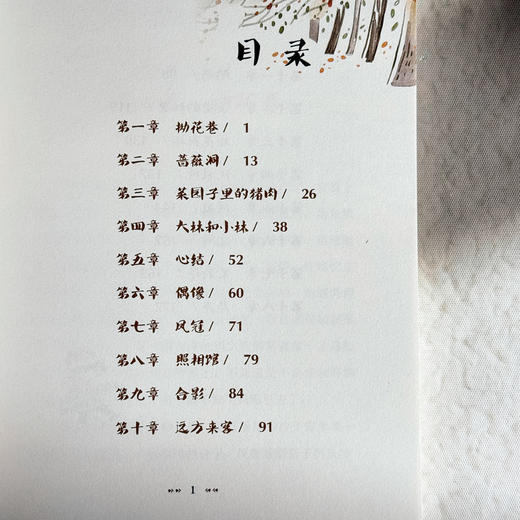 目录
第一章 拗花巷/ 1
第二章 蔷薇洞/ 13
第三章 菜园子里的猪肉/ 26
第四章 大林和小林/ 38
第五章 心结/ 52
第六章 偶像/ 60
第七章 凤冠/ 71
第八章 照相馆/ 79
第九章 合影/ 84
第十章 远方来客/ 91
1